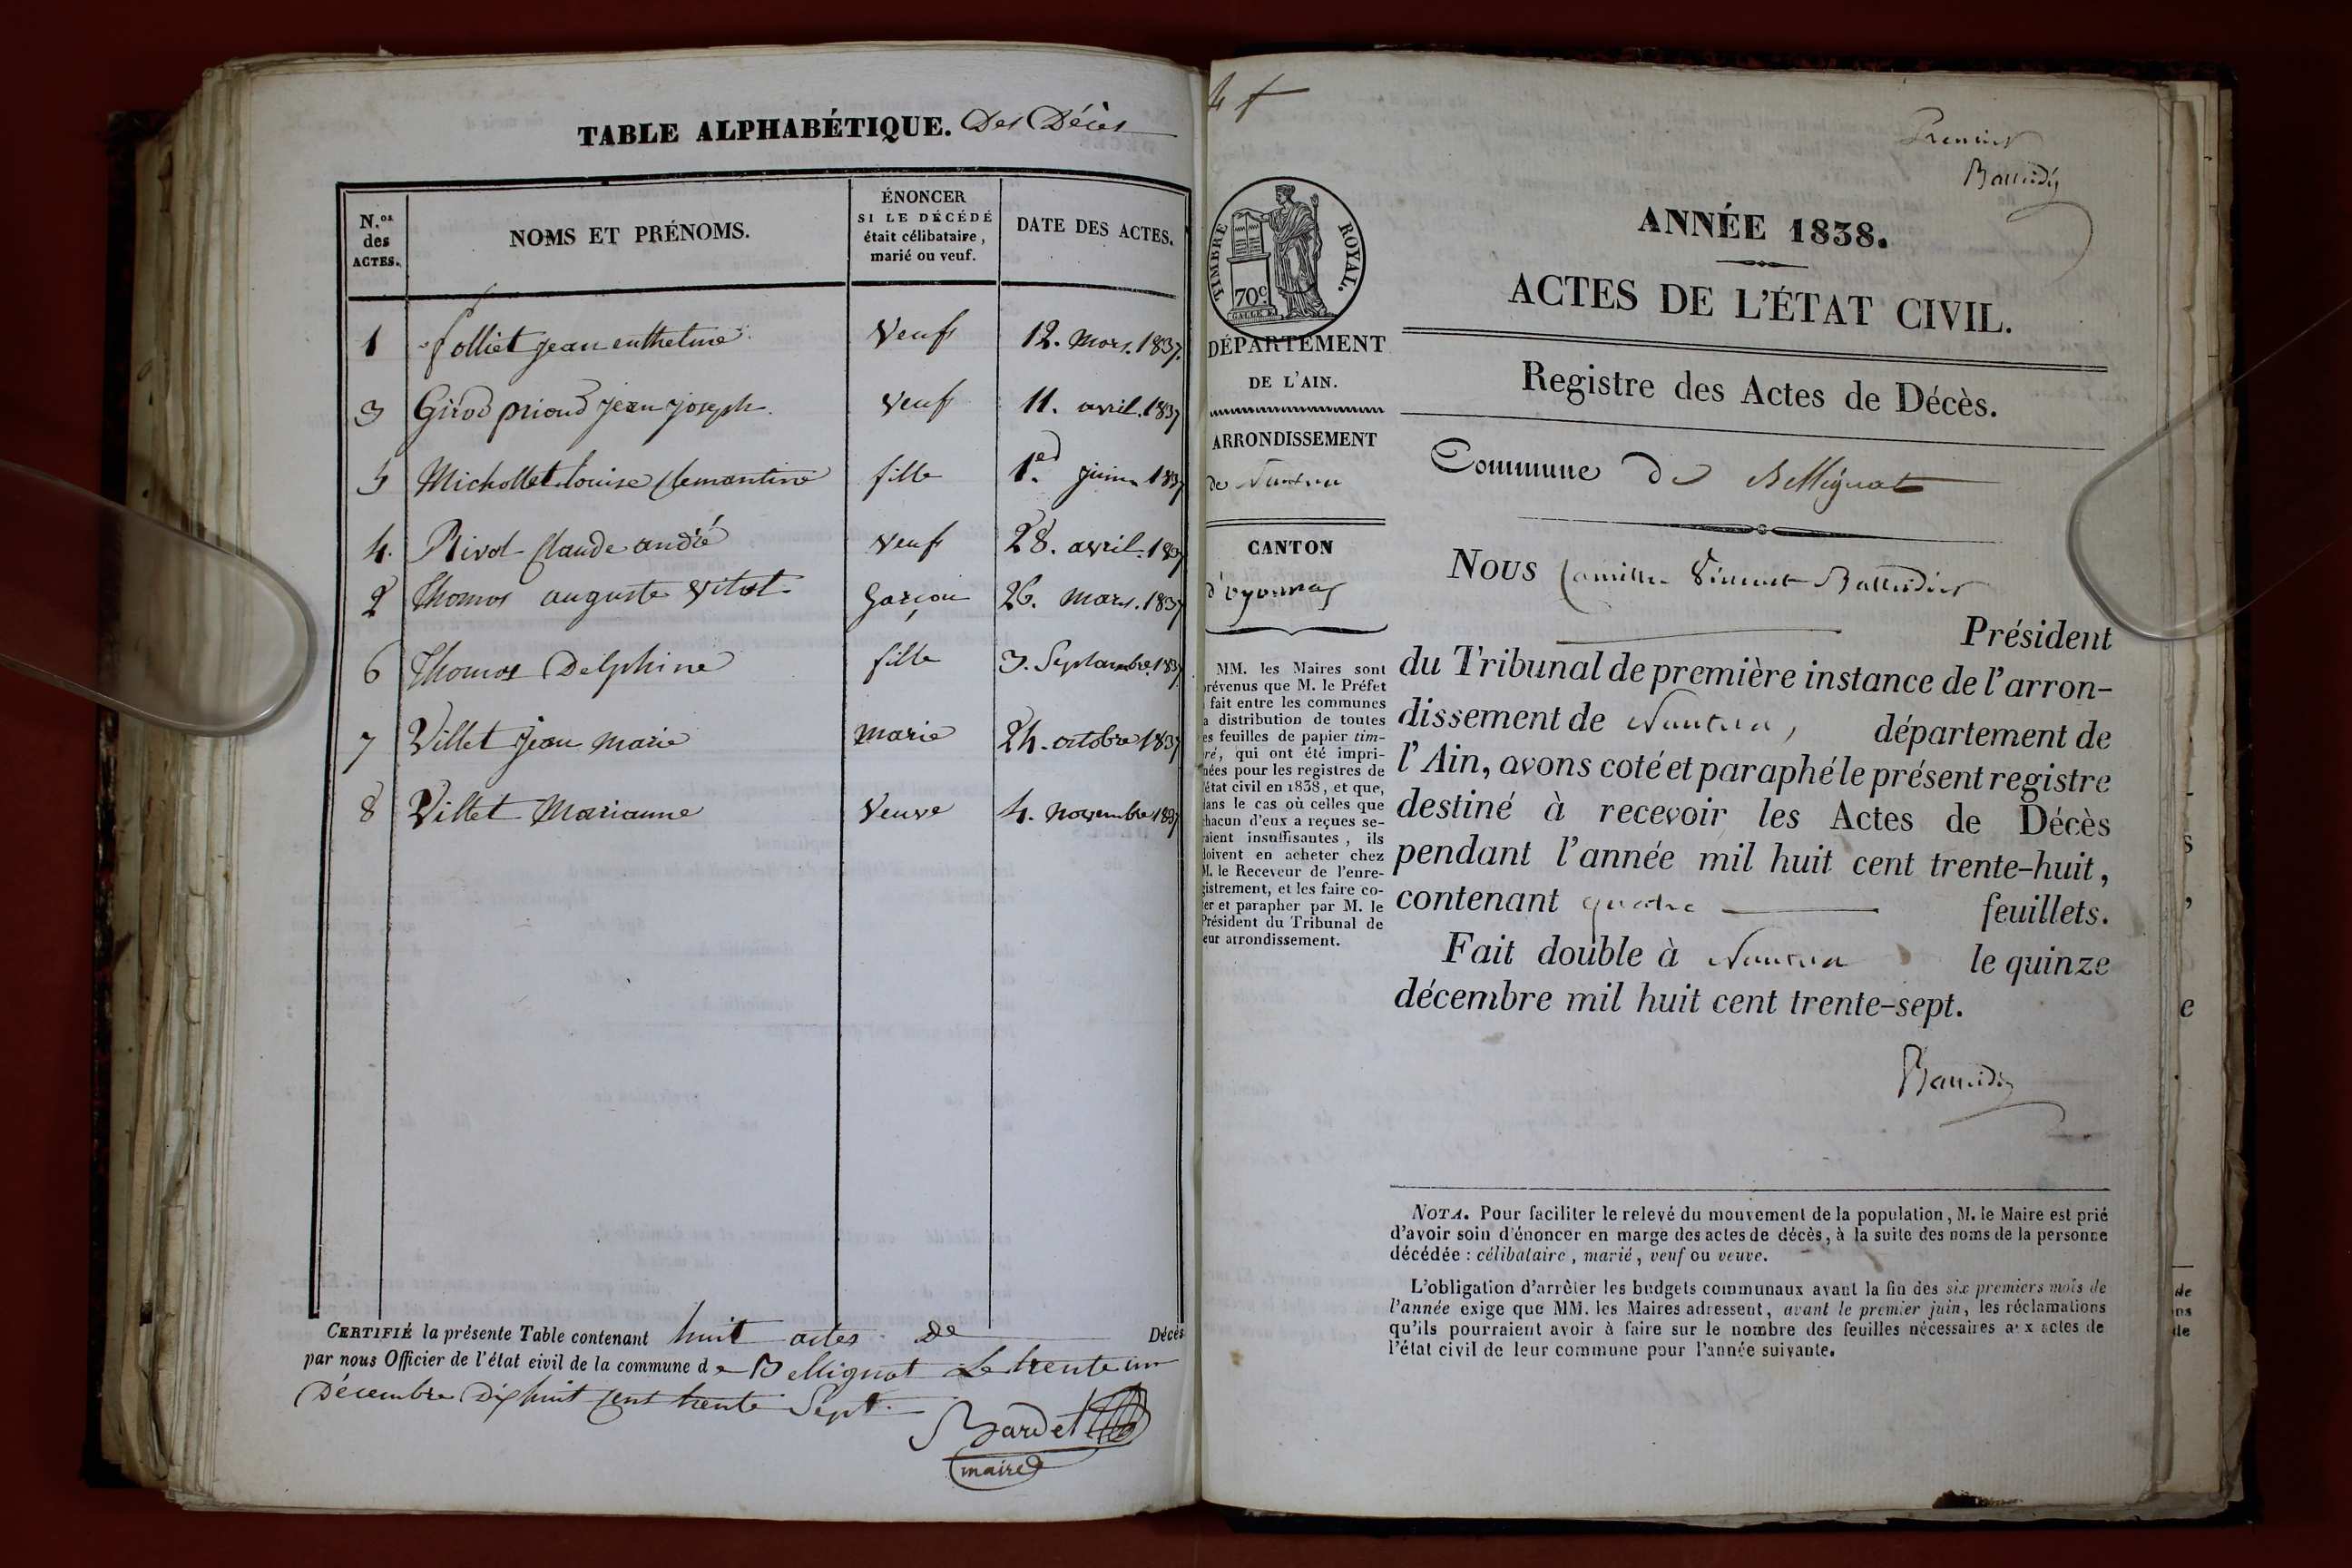 TABLE ALPHABÉTIQUE. Des Décès
N.os des ACTES.
NOMS ET PRÉNOMS.
ÉNONCER
SI LE DÉCÉDÉ
était célibataire,
marié ou veuf.
DATE DES ACTES.
1 folliet jean Veuf 12. Mars. 1837.
3 Girod priond jean joseph Veuf 11. avril. 1837
5 Michollet louise Clemantine fille 1er juin 1837
4. Rivol Claude andré Veuf 28. avril. 1837
2 Thomas auguste vital Garçon 26. Mars. 1837
6 Thomas Delphine fille 3. Septambre. 1837
7 Villet jean marie marie 24. octobre 1837
8 Villet Marianne Veuve 4. novembre 1837
CERTIFIÉ la présente Table contenant huit actes de Décès
par nous Officier de l'état civil de la commune de Bellignat Le trente un
Décembre Dix huit cent trente Sept.
Bardet
maire
Premier
TIMBRE ROYAL.
70c
DÉPARTEMENT
DE L'AIN.
ARRONDISSEMENT
de Nantua
CANTON
d'oyonnax
MM. les Maires sont
prévenus que M. le Préfet
fait entre les communes
la distribution de toutes
les feuilles de papier tim-
bré, qui ont été impri-
mées pour les registres de
l'état civil en 1838, et que,
dans le cas où celles que
chacun d'eux a reçues se-
raient insuffisantes, ils
doivent en acheter chez
M. le Receveur de l'enre-
gistrement, et les faire co-
ter et parapher par M. le
Président du Tribunal de
leur arrondissement.
ANNÉE 1838.
ACTES DE L'ÉTAT CIVIL.
Registre des Actes de Décès.
Commune de Bellignat
NOUS Camille Vincent
Président
du Tribunal de première instance de l'arron-
dissement de Nantua, département de
l'Ain, avons coté et paraphé le présent registre
destiné à recevoir les Actes de Décès
pendant l'année mil huit cent trente-huit,
contenant quatre feuillets.
Fait double à Nantua le quinze
décembre mil huit cent trente-sept.
NOTA. Pour faciliter le relevé du mouvement de la population, M. le Maire est prié
d'avoir soin d'énoncer en marge des actes de décès, à la suite des noms de la personne
décédée : célibataire, marié, veuf ou veuve.
L'obligation d'arrêter les budgets communaux avant la fin des six premiers mois de
l'année exige que MM. les Maires adressent, avant le premier juin, les réclamations
qu'ils pourraient avoir à faire sur le nombre des feuilles nécessaires a x actes de
l'état civil de leur commune pour l'année suivante.